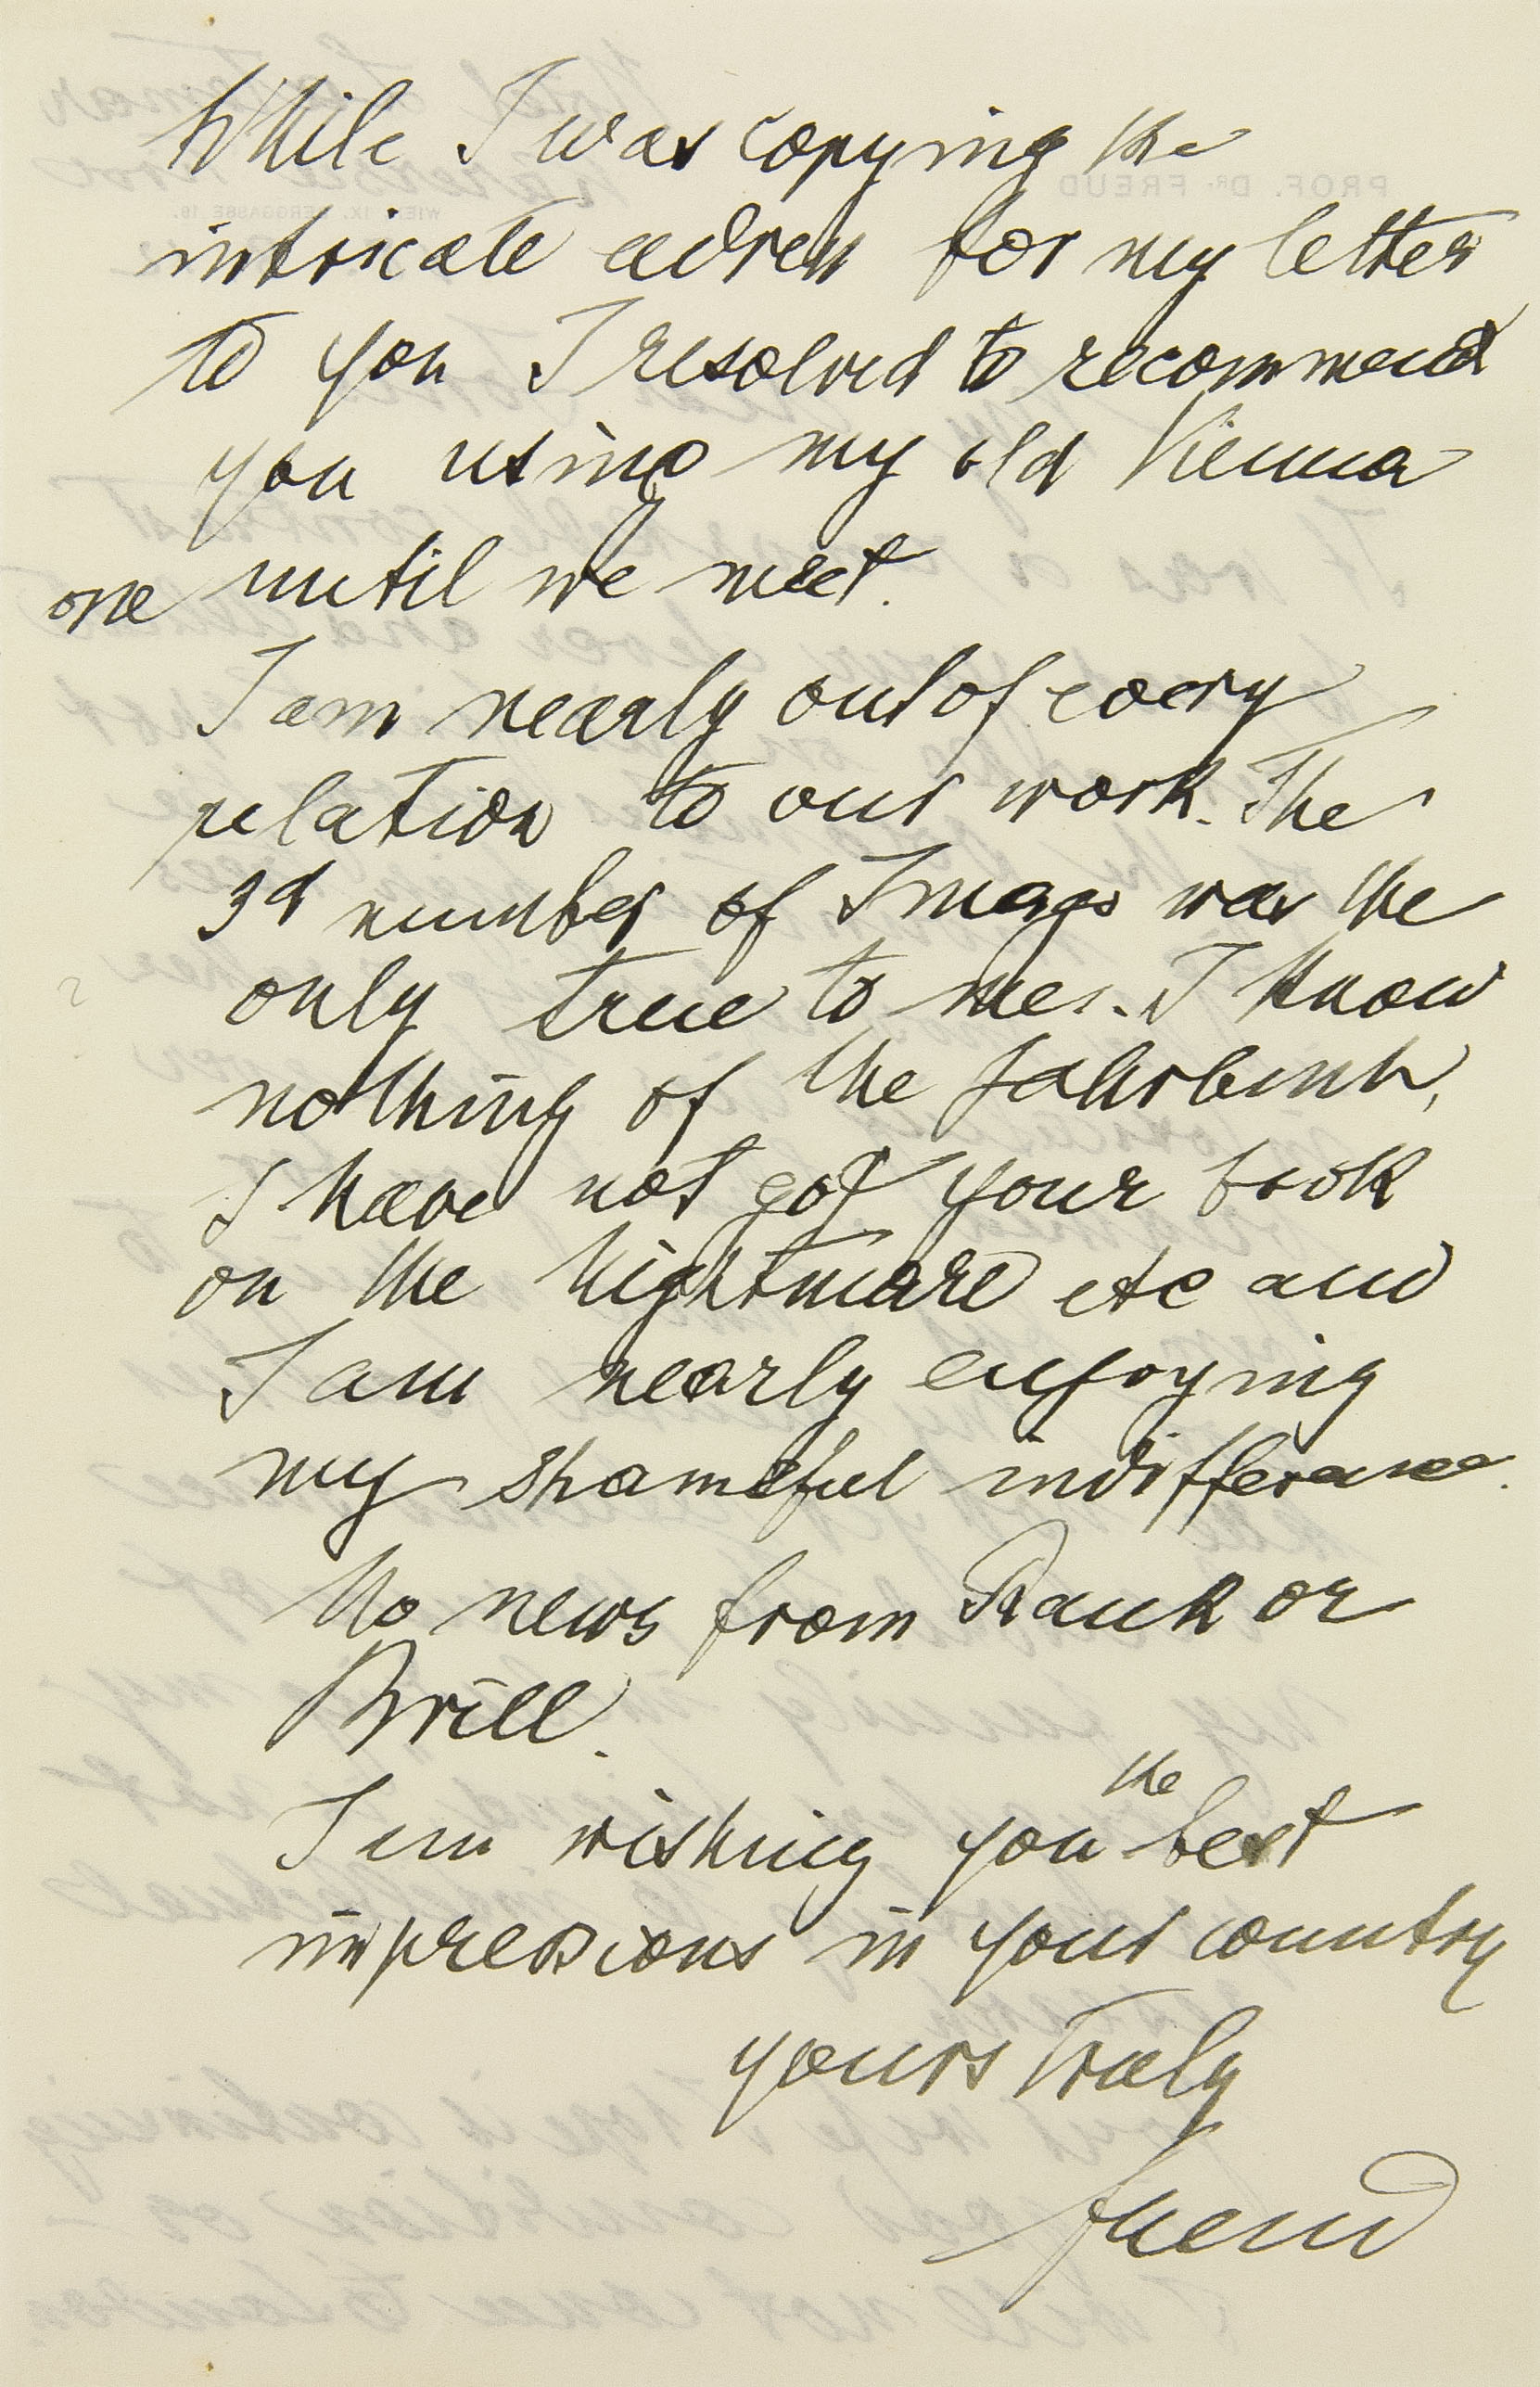 While I was copying the
intricate adress for my letter
to you I resolved to recommend
you using my old Vienna
one until we meet.
I am nearly out of every
relation to our work. The
3d number of Imago was the
only true to me. I know
nothing of the Jahrbuch,
I have not got your book
on the Nightmare etc and
I am nearly enjoying
my shameful indifference.
No news from Rank or
Brill.
I am wishing you the best
impressions in your country
yours truly
Freud
PROF. DR. FREUD
WIEN, IX. BERGGASSE 19.